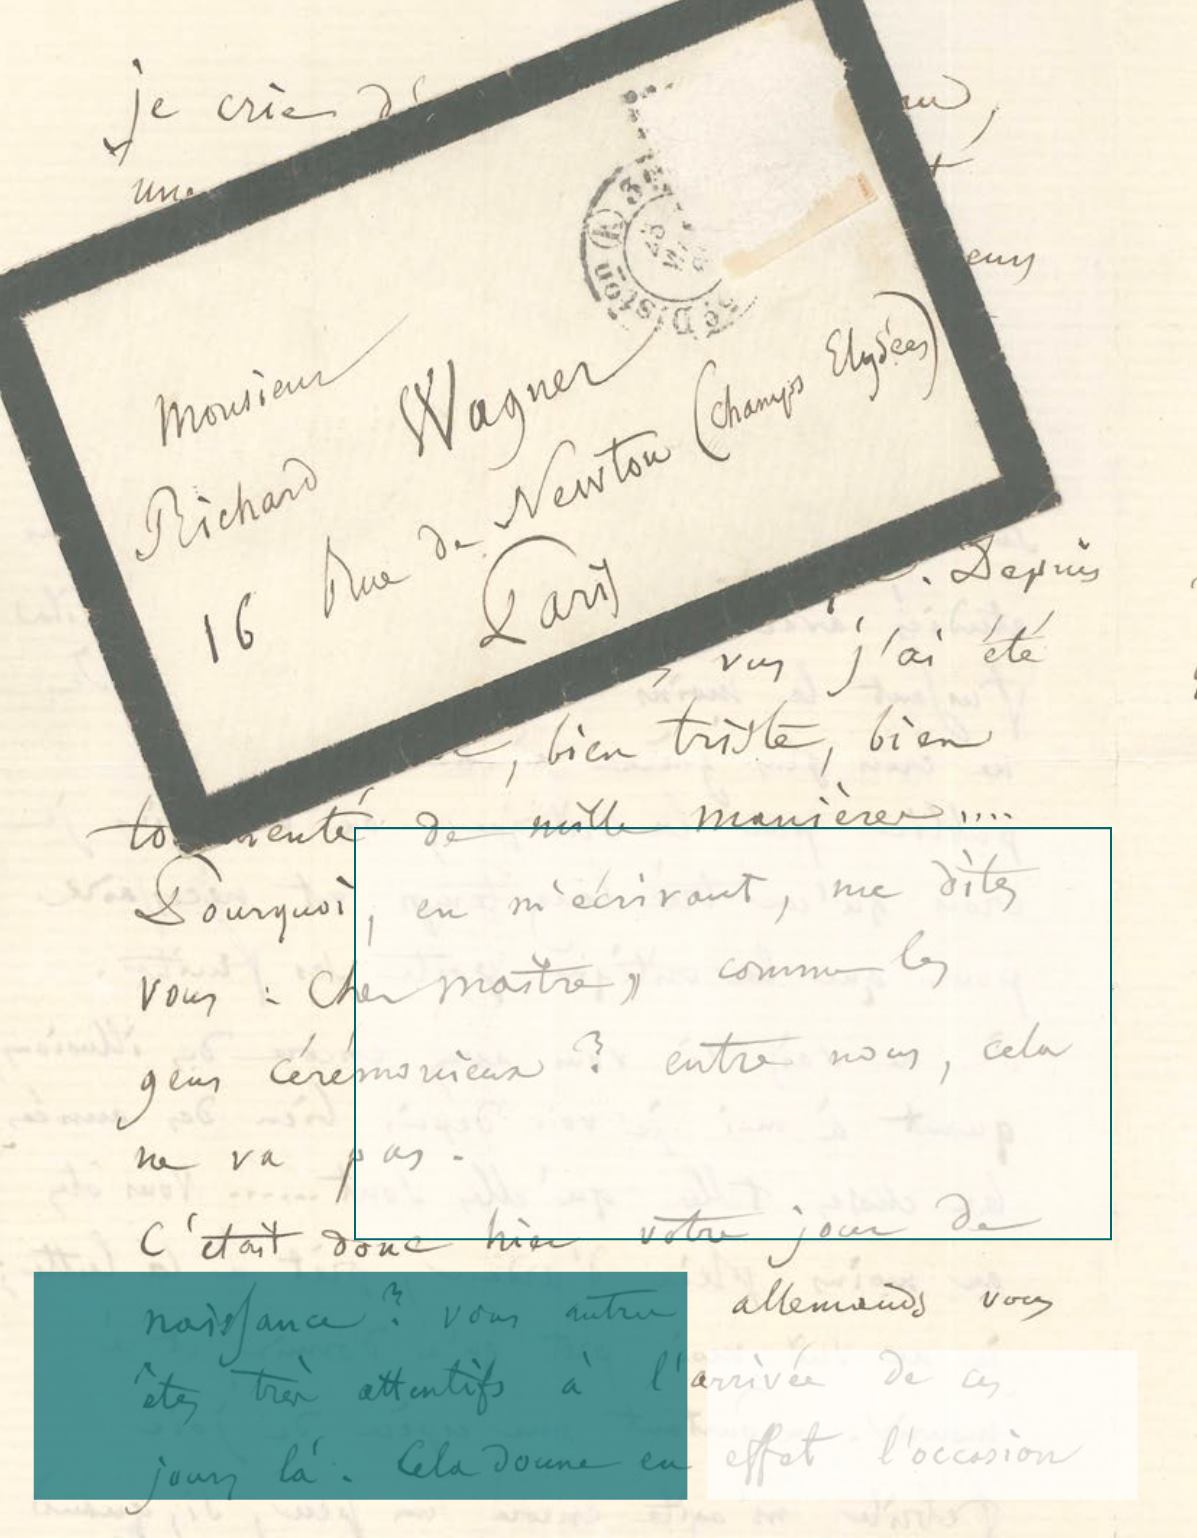 je crie
une
Monsieur
Richard Wagner
16 Rue de Newton (Champs Elysées)
Paris
Depuis
vous j'ai été
, bien triste, bien
de mille manières....
Pourquoi, en m'écrivant, me dites
vous : cher maître » comme les
gens cérémonieux ? entre nous, cela
ne va pas.
C'était donc hier votre jour de
naissance ? vous autres allemands vous
êtes très attentifs à l'arrivée de ces
jours là. Cela donne en effet l'occasion